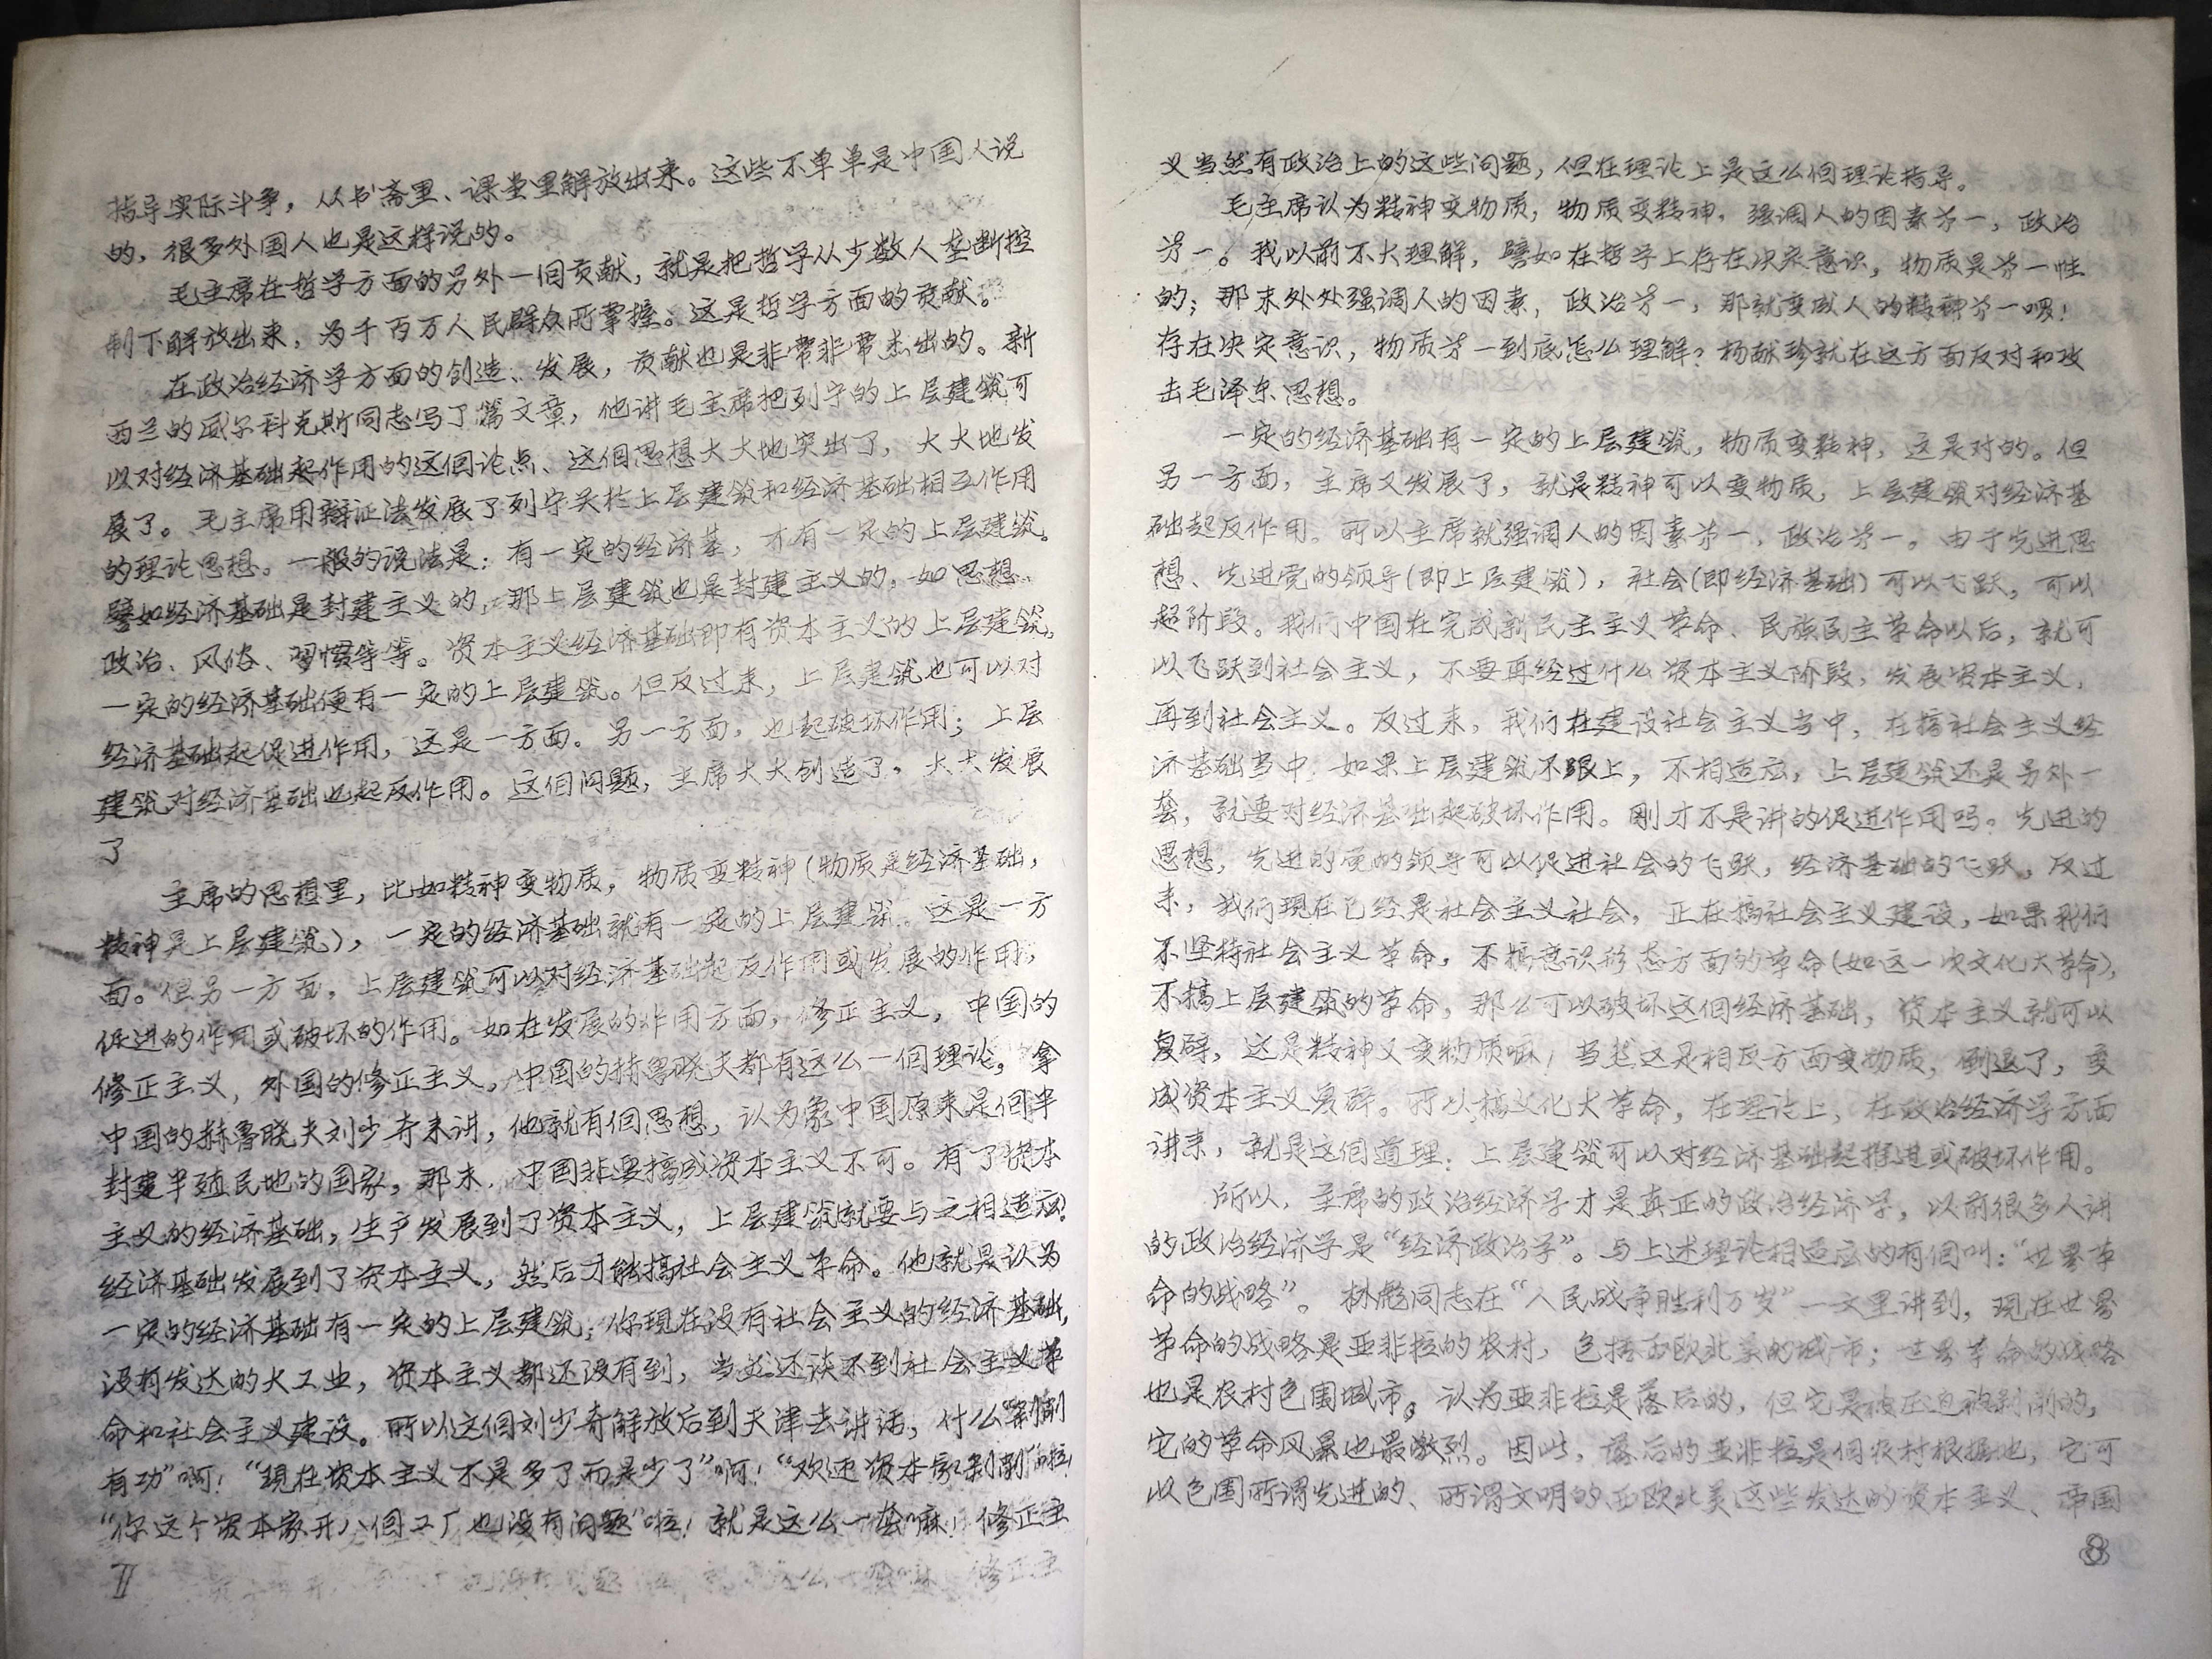 指导实际斗争，从书斋里、课堂里解放出来。这些不单单是中国人说
的，很多外国人也是这样说的。
毛主席在哲学方面的另外一个贡献，就是把哲学从少数人垄断控
制下解放出来，为千百万人民群众所掌握。这是哲学方面的贡献。
在政治经济学方面的创造、发展，贡献也是非常非常杰出的。新
西兰的威尔科克斯同志写了篇文章，他讲毛主席把列宁的上层建筑可
以对经济基础起作用的这个论点、这个思想大大地突出了，大大地发
展了。毛主席用辩证法发展了列宁关于上层建筑和经济基础相互作用
的理论思想。一般的说法是：有一定的经济基，才有一定的上层建筑。
譬如经济基础是封建主义的，那上层建筑也是封建主义的，如思想、
政治、风俗、习惯等等。资本主义经济基础即有资本主义的上层建筑。
一定的经济基础便有一定的上层建筑。但反过来，上层建筑也可以对
经济基础起促进作用，这是一方面。另一方面，也起破坏作用；上层
建筑对经济基础也起反作用。这个问题，主席大大创造了，大大发展
了
主席的思想里，比如精神变物质，物质变精神（物质是经济基础，
精神是上层建筑），一定的经济基础就有一定的上层建筑。这是一方
面。但另一方面，上层建筑可以对经济基础起反作用或发展的作用，
促进的作用或破坏的作用。如在发展的作用方面，修正主义，中国的
修正主义，外国的修正主义，中国的赫鲁晓夫都有这么一个理论，拿
中国的赫鲁晓夫刘少奇来讲，他就有个思想，认为象中国原来是个半
封建半殖民地的国家，那末，中国非要搞成资本主义不可。有了资本
主义的经济基础，生产发展到了资本主义，上层建筑就要与之相适应！
经济基础发展到了资本主义，然后才能搞社会主义革命。他就是认为
一定的经济基础有一定的上层建筑；你现在没有社会主义的经济基础，
没有发达的大工业，资本主义都还没有到，当然还谈不到社会主义革
命和社会主义建设。所以这个刘少奇解放后到天津去讲话，什么“剥削
有功”啊！“现在资本主义不是多了而是少了”啊！“欢迎资本家剥削”啦！
“你这个资本家开八个工厂也没有问题”啦！就是这么一套嘛！修正主
义当然有政治上的这些问题，但在理论上是这么个理论指导。
毛主席认为精神变物质，物质变精神，强调人的因素第一，政治
第一。我以前不大理解，譬如在哲学上存在决定意识，物质是第一性
的；那末处处强调人的因素，政治第一，那就变成人的精神第一啰！
存在决定意识，物质第一到底怎么理解？杨献珍就在这方面反对和攻
击毛泽东思想。
一定的经济基础有一定的上层建筑，物质变精神，这是对的。但
另一方面，主席又发展了，就是精神可以变物质，上层建筑对经济基
础起反作用。所以主席就强调人的因素第一，政治第一。由于先进思
想、先进党的领导（即上层建筑），社会（即经济基础）可以飞跃，可以
超阶段。我们中国在完成新民主主义革命、民族民主革命以后，就可
以飞跃到社会主义，不要再经过什么资本主义阶段，发展资本主义，
再到社会主义。反过来，我们在建设社会主义当中，在搞社会主义经
济基础当中，如果上层建筑不跟上，不相适应，上层建筑还是另外一
套，就要对经济基础起破坏作用。刚才不是讲的促进作用吗。先进的
思想，先进的党的领导可以促进社会的飞跃，经济基础的飞跃，反过
来，我们现在已经是社会主义社会，正在搞社会主义建设，如果我们
不坚持社会主义革命，不搞意识形态方面的革命（如这一次文化大革命），
不搞上层建筑的革命，那么可以破坏这个经济基础，资本主义就可以
复辟，这是精神又变物质嘛！当然这是相反方面变物质，倒退了，变
成资本主义复辟。所以搞文化大革命，在理论上，在政治经济学方面
讲来，就是这个道理：上层建筑可以对经济基础起推进或破坏作用。
所以，主席的政治经济学才是真正的政治经济学，以前很多人讲
的政治经济学是“经济政治学”。与上述理论相适应的有个叫：“世界革
命的战略”。林彪同志在“人民战争胜利万岁”一文里讲到，现在世界
革命的战略是亚非拉的农村，包括西欧北美的城市；世界革命的战略
也是农村包围城市。认为亚非拉是落后的，但它是被压迫被剥削的，
它的革命风暴也最激烈。因此，落后的亚非拉是个农村根据地，它可
以包围所谓先进的、所谓文明的西欧北美这些发达的资本主义、帝国
8